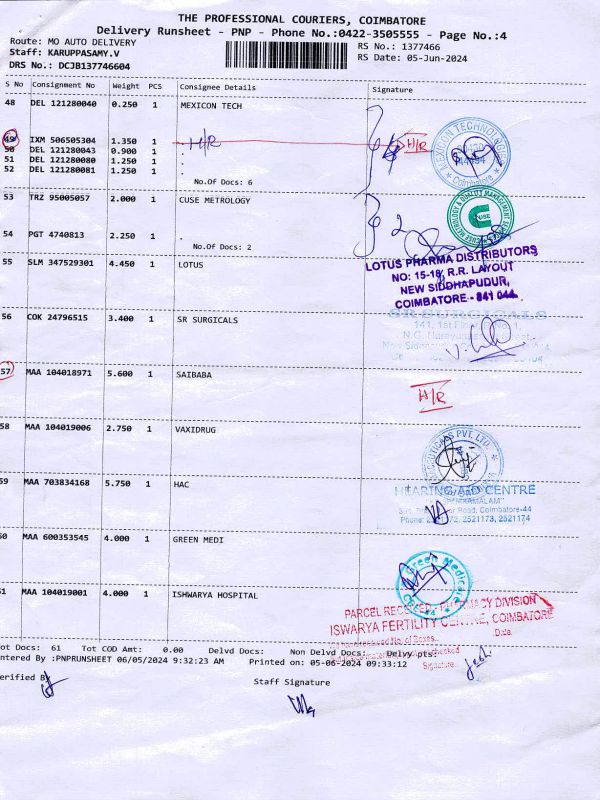 THE PROFESSIONAL COURIERS, COIMBATORE
Delivery Runsheet - PNP - Phone No.:0422-3505555 - Page No.:4
Route: MO AUTO DELIVERY
RS No.: 1377466
Staff: KARUPPASAMY.V
RS Date: 05-Jun-2024
DRS No.: DCJB137746604
S No Consignment No Weight PCS Consignee Details Signature
48 DEL 121280040 0.250 1 MEXICON TECH
49 IXM 506505304 1.350 1 H/R H/R
50 DEL 121280043 0.900 1 .
51 DEL 121280080 1.250 1 .
52 DEL 121280081 1.250 1 .
No.Of Docs: 6
MEXICON TECHNOLOGIES
Coimbatore
53 TRZ 95005057 2.000 1 CUSE METROLOGY
CUSE
2
54 PGT 4740813 2.250 1 .
No.Of Docs: 2
55 SLM 347529301 4.450 1 LOTUS
LOTUS PHARMA DISTRIBUTORS
NO: 15-18, R.R. LAYOUT
NEW SIDDHAPUDUR,
COIMBATORE - 641 044.
56 COK 24796515 3.400 1 SR SURGICALS
SR SURGICALS
57 MAA 104018971 5.600 1 SAIBABA
H/R
58 MAA 104019006 2.750 1 VAXIDRUG
PVT. LTD.
59 MAA 703834168 5.750 1 HAC
HEARING AID CENTRE
Road, Coimbatore-44
2521173, 2521174
60 MAA 600353545 4.000 1 GREEN MEDI
Green Medical
61 MAA 104019001 4.000 1 ISHWARYA HOSPITAL
PARCEL RECEIVED PHARMACY DIVISION
ISWARYA FERTILITY CENTRE, COIMBATORE
Date:
Tot Docs: 61 Tot COD Amt: 0.00 Delvd Docs: Non Delvd Docs: Delvy pts:
Entered By :PNPRUNSHEET 06/05/2024 9:32:23 AM Printed on: 05-06-2024 09:33:12
Signature:
Verified By
Staff Signature